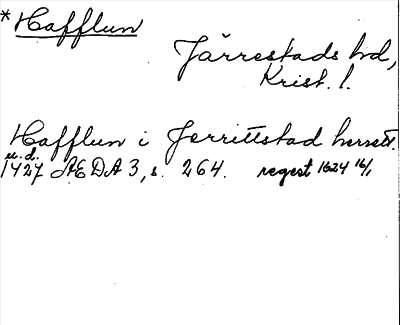 *Hafflun
Järrestads hd,
Krist. l.
Hafflun i Jerrittstad herrett.
u. d.
1427 ÆDA 3, s. 264. regest 1624 16/1